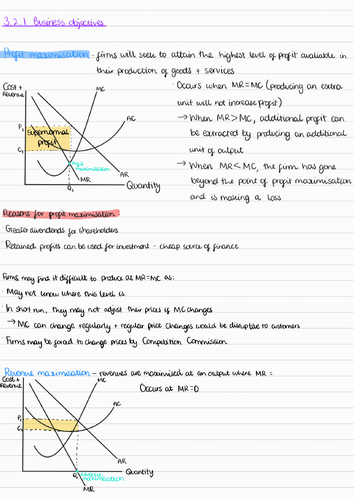 3.2.1 Business objectives
Profit maximisation - firms will seek to attain the highest level of profit available in
their production of goods + services
Cost +
Revenue
MC
AC
P₁
C₁
Supernormal
profit
Profit
maximisation
Q₁
MR
AR
Quantity
· Occurs when MR=MC (producing an extra
unit will not increase profit)
→ When MR>MC, additional profit can
be extracted by producing an additional
unit of output
→ When MR<MC, the firm has gone
beyond the point of profit maximisation
and is making a loss
Reasons for profit maximisation
· Greater dividends for shareholders
· Retained profits can be used for investment - cheap source of finance
Firms may find it difficult to produce at MR=MC as:
· May not know where this level is
· In short run, they may not adjust their prices if MC changes
→ MC can change regularly + regular price changes would be disruptive to customers
· Firms may be forced to change prices by Competition Commission
Revenue maximisation - revenues are maximised at an output where MR =
Cost +
Revenue
MC
AC
P₁
C₁
AR
Q₁
revenue
maximisation
Quantity
MR
Occurs at MR=0